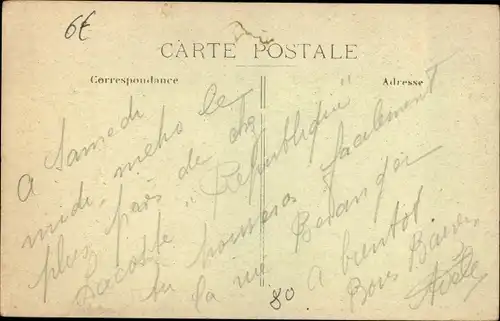 6€
CARTE POSTALE
Correspondance
Adresse
A Samedi
midi. metro le
plus près de chez
Lacoste "République"
tu trouveras facilement
la rue Beranger
a bientot
Bons Baisers
80